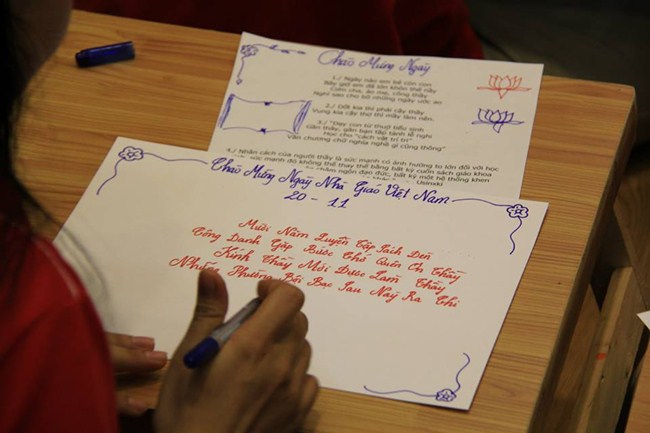 Chào Mừng Ngày
1./ Ngày nào em bé cỏn con
Bây giờ em đã lớn khôn thế này
Cơm cha, áo mẹ, công thầy
Nghĩ sao cho bõ những ngày ước ao
2./ Dốt kia thì phải cậy thầy
Vụng kia cậy thợ thì mày làm nên.
3./ "Dạy con từ thuở tiểu sinh
Gần thầy, gần bạn tập tành lễ nghi
Học cho "cách vật trí tri"
Văn chương chữ nghĩa nghề gì cũng thông"
4./ Nhân cách của người thầy là sức mạnh có ảnh hưởng to lớn đối với học
sức mạnh đó không thể thay thế bằng bất kỳ cuốn sách giáo khoa
châm ngôn đạo đức, bất kỳ một hệ thống khen
Usinxki
Chào Mừng Ngày Nhà Giáo Việt Nam
20 - 11
Mười Năm Luyện Tập Sách Đèn
Công Danh Gặp Bước Chớ Quên Ơn Thầy
Kính Thầy Mới Được Làm Thầy
Những Phường Bội Bạc Sau Này Ra Chi